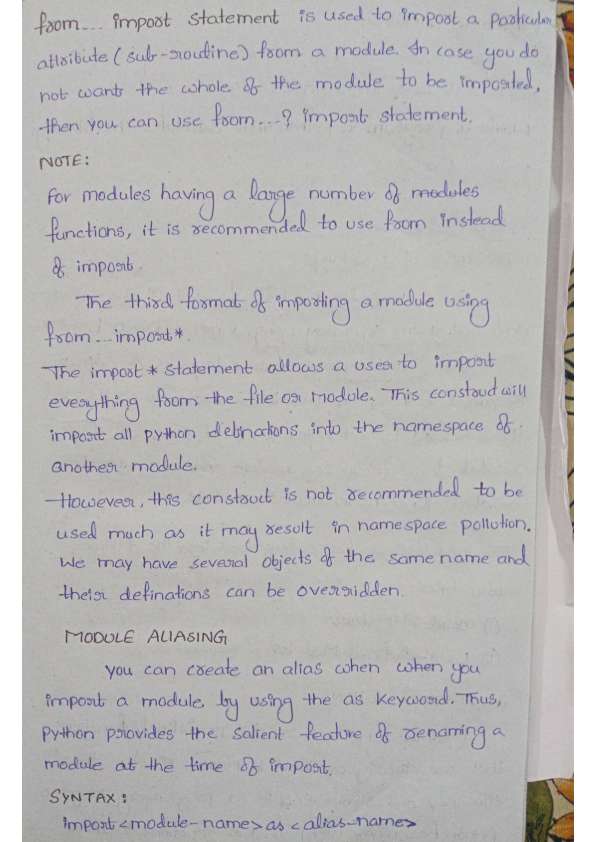 from... import statement is used to import a particular
attribute (sub-routine) from a module. In case you do
not want the whole of the module to be imported,
then you can use from...? import statement.
NOTE:
For modules having a large number of modules
functions, it is recommended to use from instead
of import.
The third format of importing a module using
from...import*.
The import * statement allows a user to import
everything from the file or module. This construd will
import all python definations into the namespace of
another module.
However, this construct is not recommended to be
used much as it may result in namespace pollution.
We may have several objects of the same name and
their definations can be overridden.
MODULE ALIASING
You can create an alias when when you
import a module by using the as keyword. Thus,
Python provides the salient feature of renaming a
module at the time of import.
SYNTAX:
import <module-name> as <alias-name>